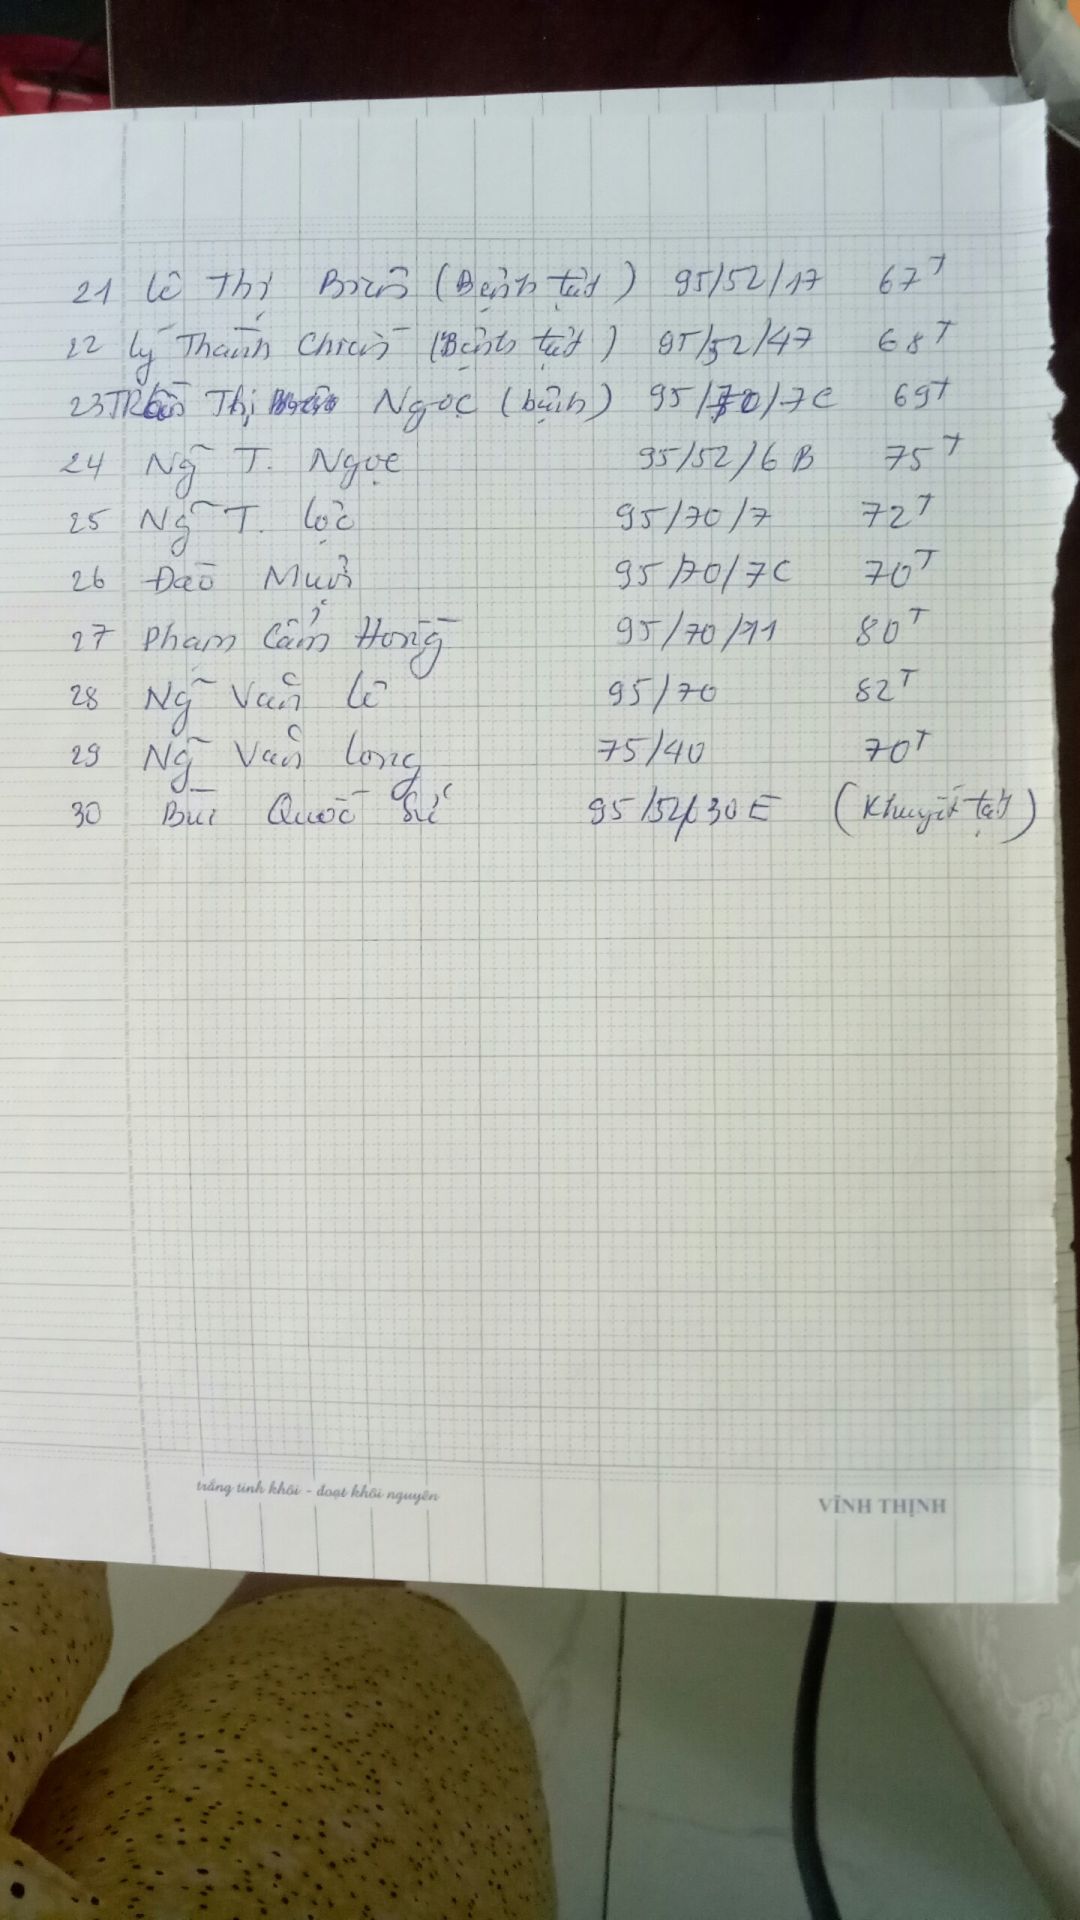 21 Lê Thị Biên (Bệnh tật) 95/52/17 67T
22 Lý Thành Chiến (Bệnh tật) 95/52/47 68T
23 Trần Thị Ngọc (bệnh) 95/70/7C 69T
24 Ng̃ T. Ngọc 95/52/6B 75T
25 Ng̃ T. Lộc 95/70/7 72T
26 Đào Mười 95/70/7C 70T
27 Phạm Cẩm Hồng 95/70/11 80T
28 Ng̃ Văn Lê 95/70 82T
29 Ng̃ Văn Long 75/40 70T
30 Bùi Quốc 95/52/30E (Khuyết tật)
trắng tinh khôi - đoạt khôi nguyên
VĨNH THỊNH